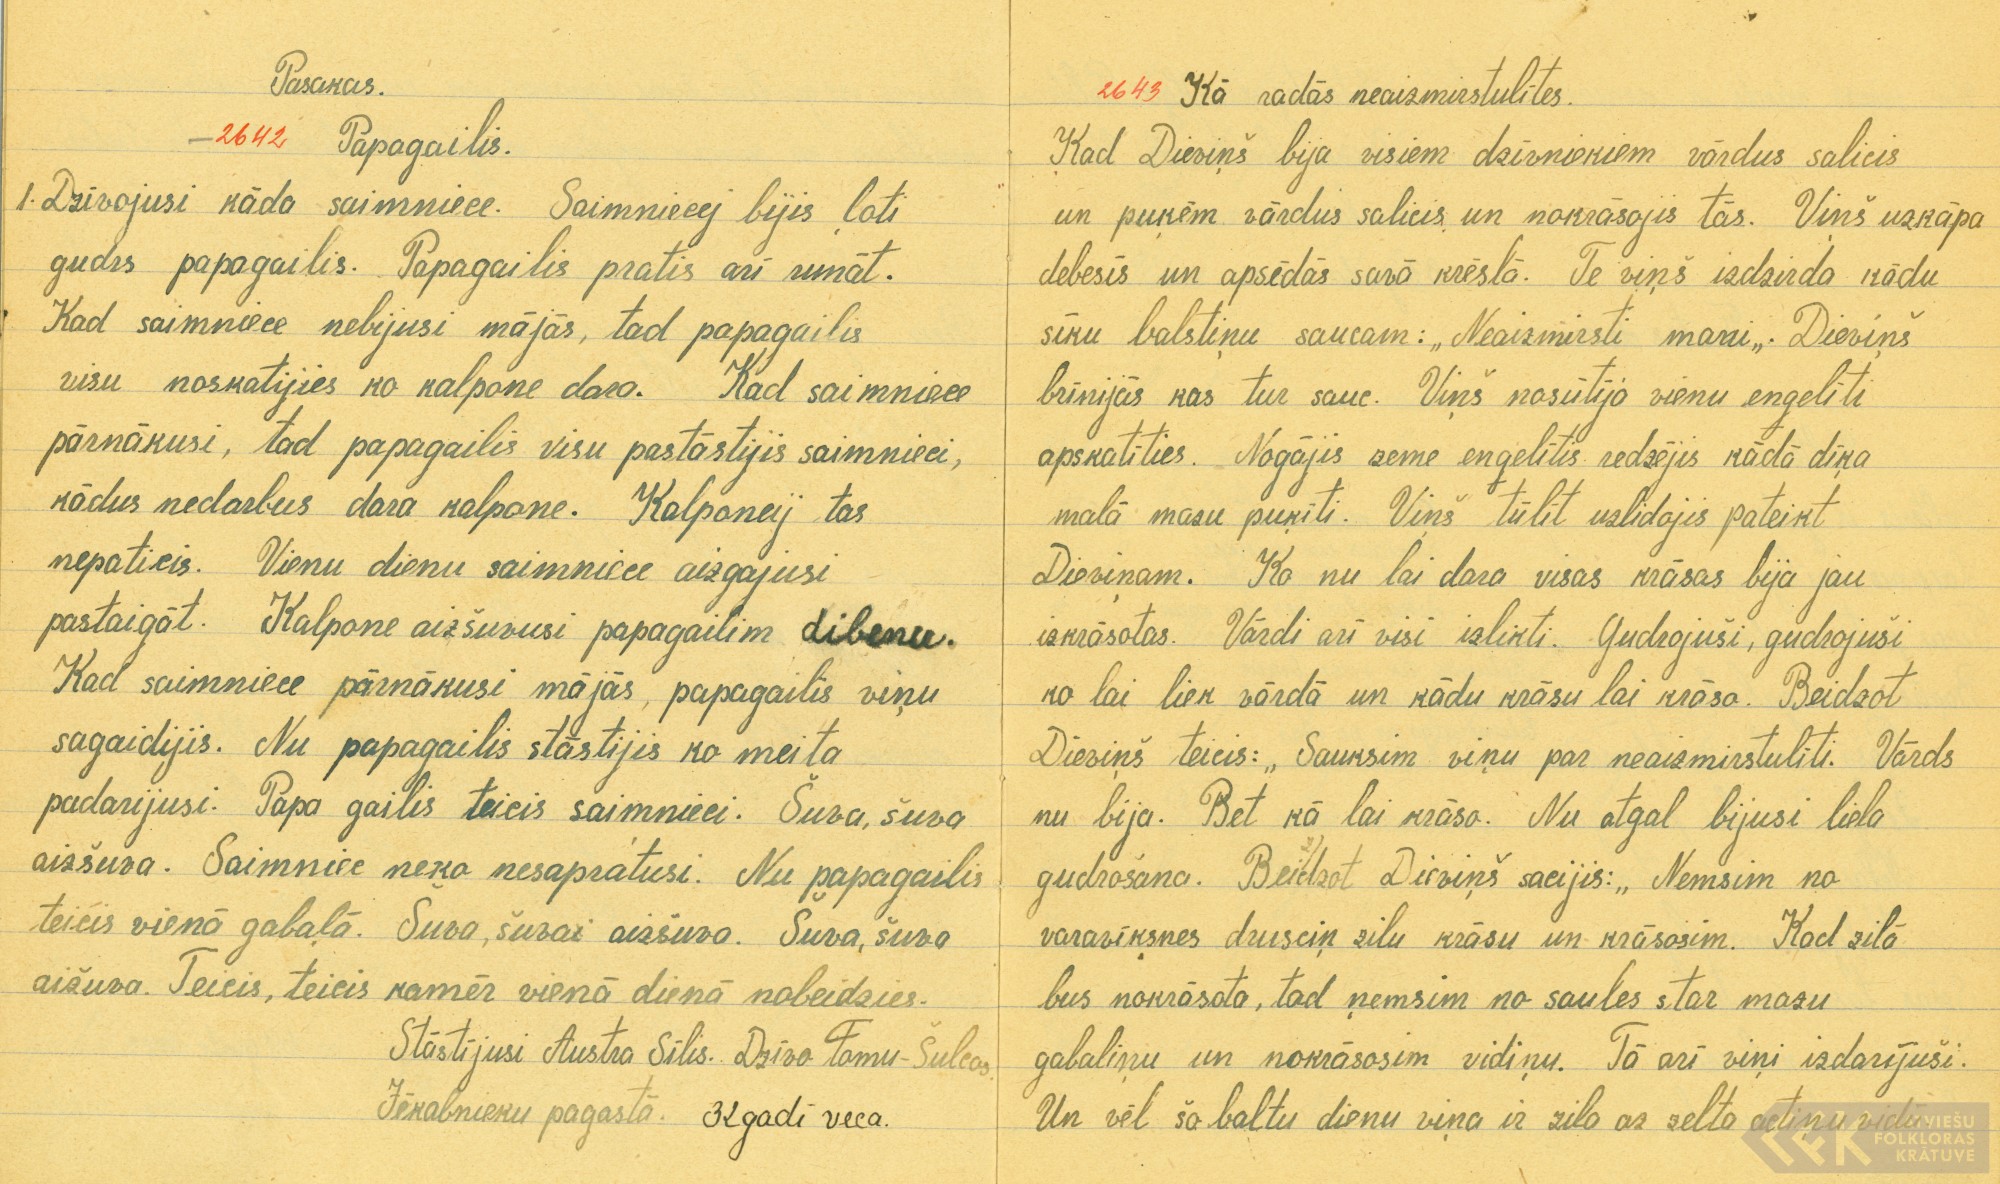 Pasakas.
2642 Papagailis.
1. Dzīvojusi kāda saimniece. Saimniecej bijis ļoti
gudrs papagailis. Papagailis pratis arī runāt.
Kad saimniece nebijusi mājās, tad papagailis
visu noskatijies ko kalpone dara. Kad saimniece
pārnākusi, tad papagailis visu pastāstijis saimnieci,
kādus nedarbus dara kalpone. Kalponeij tas
nepaticis. Vienu dienu saimniece aizgajusi
pastaigāt. Kalpone aizšuvusi papagailim dibenu.
Kad saimniece pārnākusi mājās, papagailis viņu
sagaidijis. Nu papagailis stāstijis ko meita
padarijusi. Papa gailis teicis saimnieci. Šuva, šuva
aizšuva. Saimniece neko nesapratusi. Nu papagailis
teicis vienā gabaļā. Šuva, šuvai aizšuva. Šuva, šuva
aizuva. Teicis, teicis kamēr vienā dienā nobeidzies.
Stāstījusi Austra Sīlis. Dzīvo Tomu-Šulcos.
Jēkabnieku pagastā. 32 gadi veca.
2643 Kā radās neaizmirstulītes.
Kad Dieviņš bija visiem dzīvniekiem vārdus salicis
un puķēm vārdus salicis un nokrāsojis tās. Viņš uzkāpa
debesīs un apsēdās savā krēslā. Te viņš izdzirda kādu
sīku balstiņu saucam: „Neaizmirsti mani„. Dieviņš
brīnijās kas tur sauc. Viņš nosūtīja vienu eņgelīti
apskatīties. Nogājis zeme eņgelītis redzējis kādā dīķa
malā mazu puķīti. Viņš tūlīt uzlidojis pateikt
Dieviņam. Ko nu lai dara visas krāsas bija jau
izkrāsotas. Vārdi arī visi izlikti. Gudrojuši, gudrojuši
ko lai liek vārdā un kādu krāsu lai krāso. Beidzot
Dieviņš teicis: „Sauksim viņu par neaizmirstulīti. Vārds
nu bija. Bet kā lai krāso. Nu atgal bijusi liela
gudrošana. Beidzot Dieviņš sacijis: „Nemsim no
varavīksnes drusciņ zilu krāsu un krāsosim. Kad zila
bus nokrāsota, tad ņemsim no saules star mazu
gabaliņu un nokrāsosim vidiņu. Tā arī viņi izdarījuši.
Un vēl šo baltu dienu viņa ir zila ar zelta actiņu vidū.
LFK LATVIEŠU
FOLKLORAS
KRĀTUVE